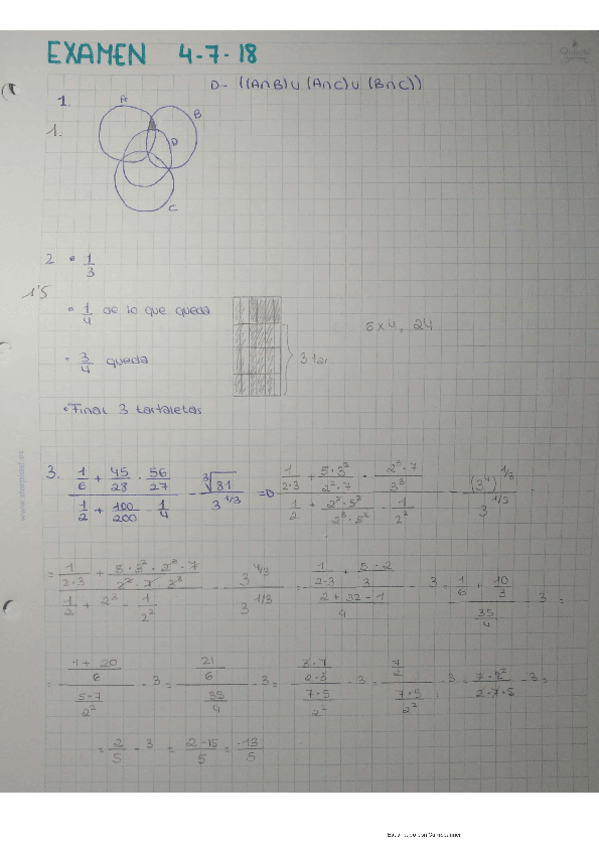 EXAMEN 4-7-18
D- ((A∩B)∪(A∩C)∪(B∩C))
1.
A
B
1.
D
C
2 • 1/3
1'5
• 1/4 de lo que queda
6x4, 24
• 3/4 queda
3 tar
• Final 3 tartaletas
3. (1/6 + 45/28 · 56/27)/(1/2 + 100/200 - 1/4) - ∛81/3^(1/3) =D (1/(2·3) + (5·3²)/(2²·7) · (2³·7)/3³)/(1/2 + (2²·5²)/(2³·5²) - 1/2²) - (3⁴)^(1/3)/3^(1/3)
= (1/(2·3) + (5·3²·2³·7)/(2²·7·3³))/(1/2 + 2³ - 1/2²) - 3^(4/3)/3^(1/3) = (1/(2·3) + (5·2)/3)/((2+32-1)/4) - 3 = (1/6 + 10/3)/(35/4) - 3 =
= ((1+20)/6)/((5·7)/2²) - 3 = (21/6)/(35/4) - 3 = ((3·7)/(2·3))/((7·5)/2²) - 3 = (7/2)/((7·5)/2²) - 3 = (7·2²)/(2·7·5) - 3 =
= 2/5 - 3 = (2-15)/5 = -13/5